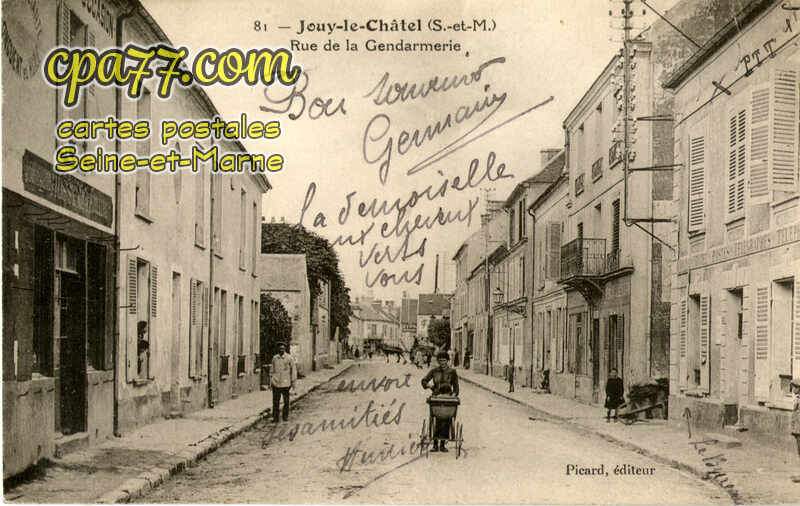 81 — Jouy-le-Châtel (S.-et-M.)
Rue de la Gendarmerie
cpa77.com
cartes postales
Seine-et-Marne
Bon souvenir
Germaine
la demoiselle
aux cheveux
verts
vous
envoie
ses amitiés
PTT
Picard, éditeur